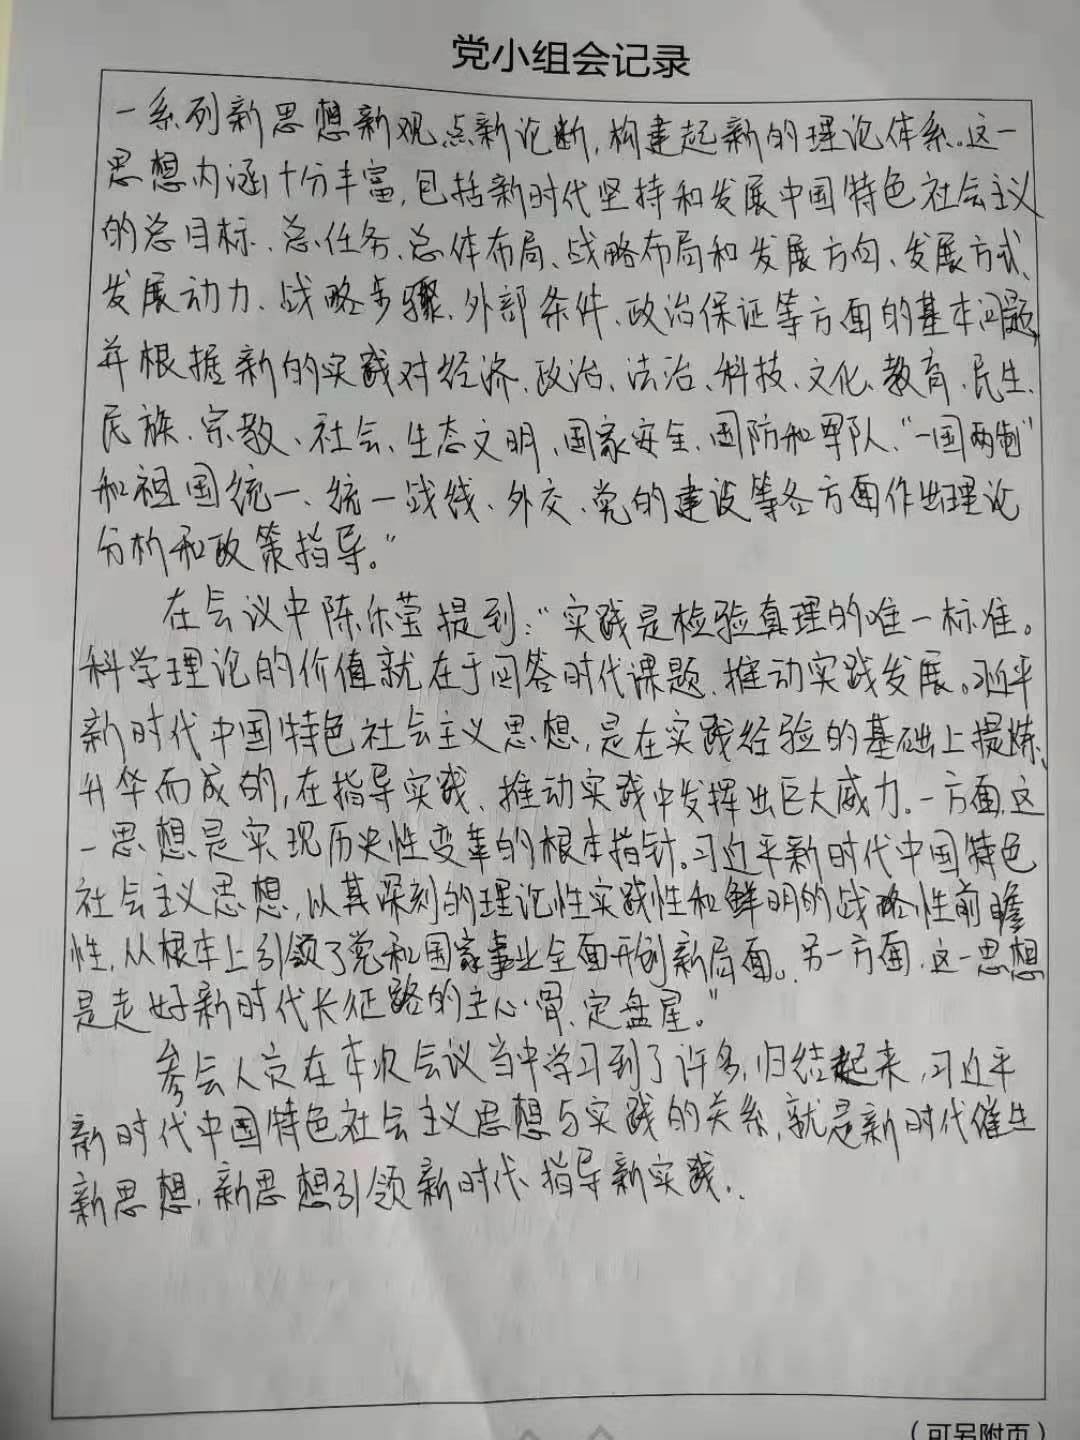 党小组会记录
一系列新思想新观点新论断,构建起新的理论体系。这一
思想内涵十分丰富,包括新时代坚持和发展中国特色社会主义
的总目标、总任务、总体布局、战略布局和发展方向、发展方式、
发展动力、战略步骤、外部条件、政治保证等方面的基本问题,
并根据新的实践对经济、政治、法治、科技、文化、教育、民生、
民族、宗教、社会、生态文明、国家安全、国防和军队、“一国两制”
和祖国统一、统一战线、外交、党的建设等各方面作出理论
分析和政策指导。”
在会议中陈乐莹提到:“实践是检验真理的唯一标准。
科学理论的价值就在于回答时代课题、推动实践发展。习近平
新时代中国特色社会主义思想,是在实践经验的基础上提炼、
升华而成的,在指导实践、推动实践中发挥出巨大威力。一方面,这
一思想是实现历史性变革的根本指针。习近平新时代中国特色
社会主义思想,以其深刻的理论性实践性和鲜明的战略性前瞻
性,从根本上引领了党和国家事业全面开创新局面。另一方面,这一思想
是走好新时代长征路的主心骨、定盘星。”
参会人员在本次会议当中学习到了许多,归结起来,习近平
新时代中国特色社会主义思想与实践的关系,就是新时代催生
新思想,新思想引领新时代、指导新实践。
(可另附页)